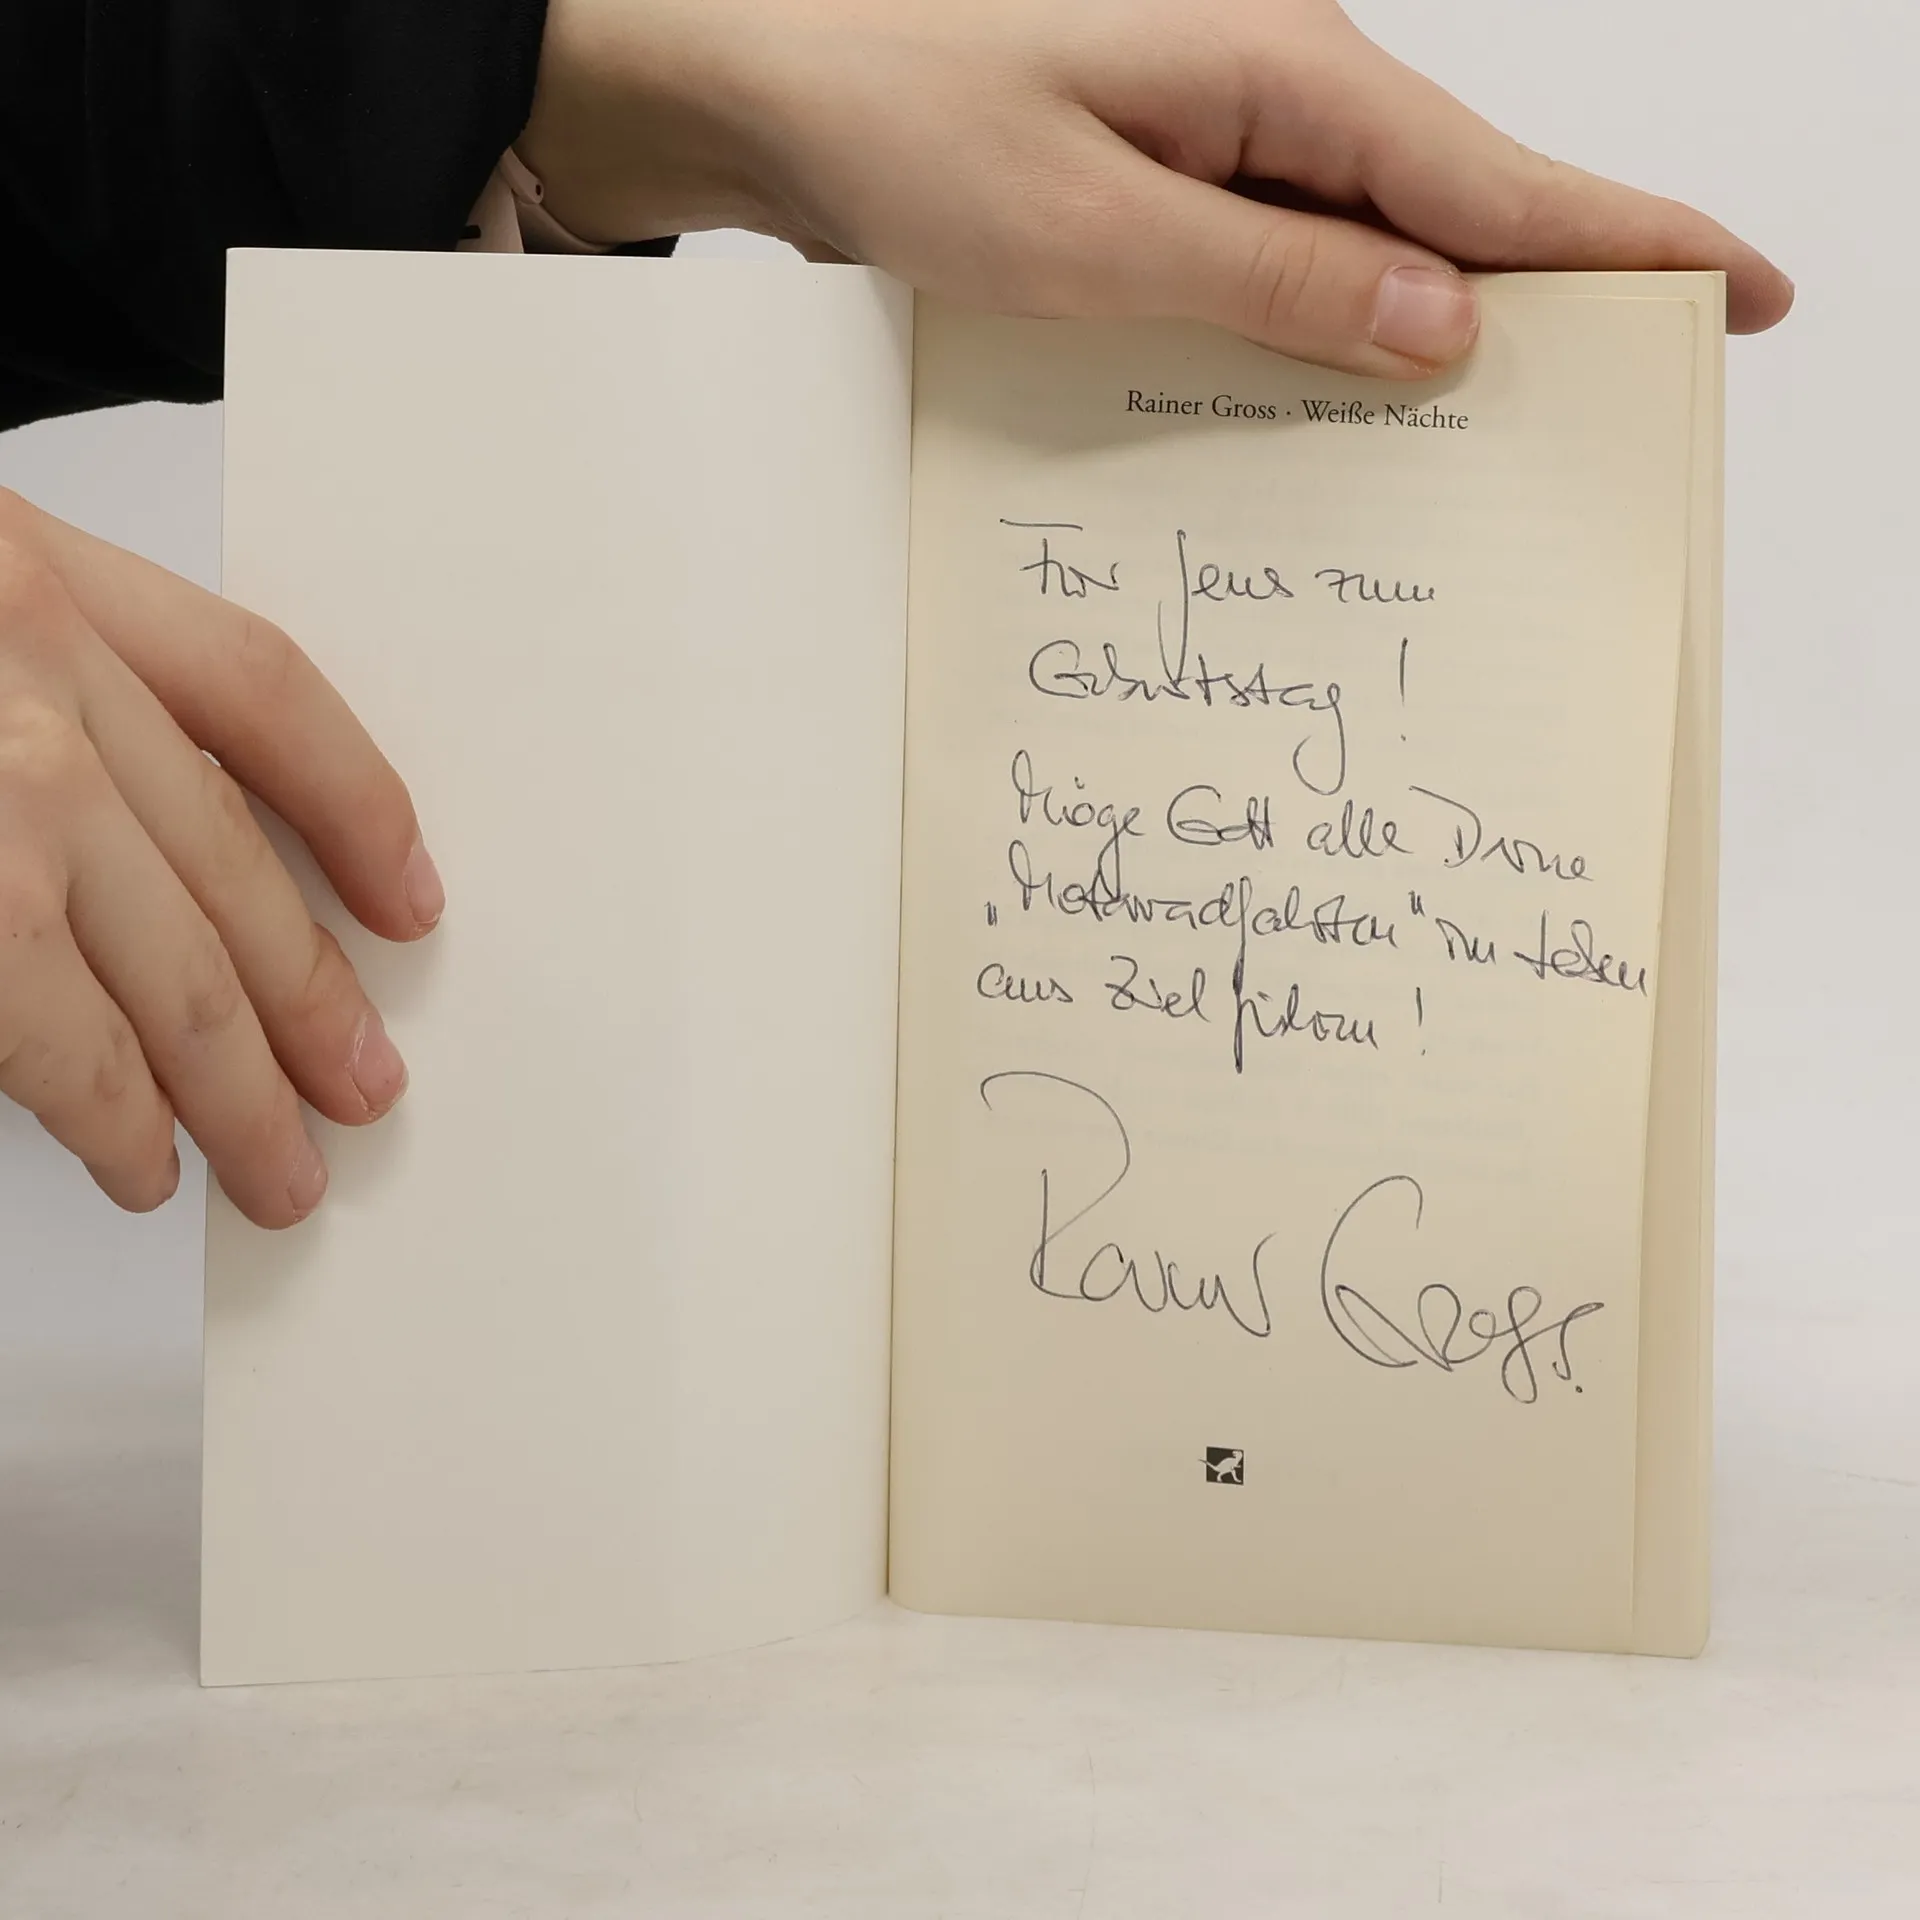 Rainer Gross · Weiße Nächte
Für Jens zum
Geburtstag!
Möge Gott alle Deine
„Motorradfahrten" im Leben
ans Ziel führen!
Rainer Gross.